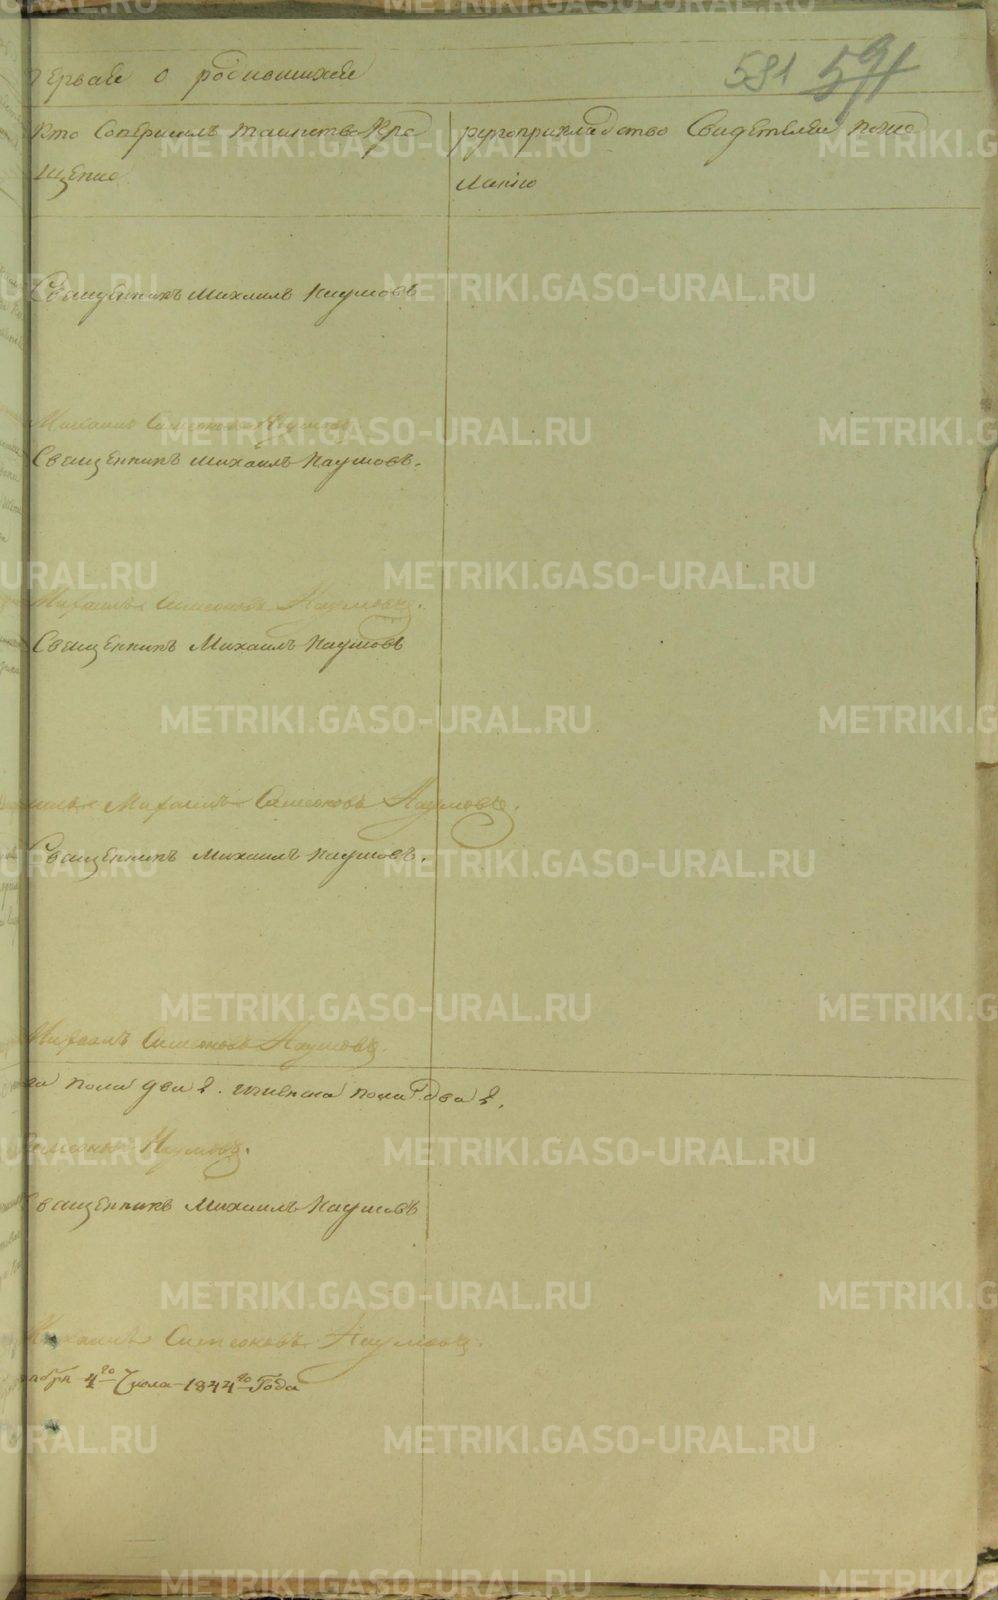 первая о родившихся
581 591
Кто Совершилъ таинство Кре рукоприкладство Свидетелей поже
щение ланию
Священникъ Михаилъ Наумовъ
Михаилъ Симеоновъ Наумовъ
Священникъ Михаилъ Наумовъ.
Михаилъ Симеоновъ Наумовъ.
Священникъ Михаилъ Наумовъ
Михаилъ Симеоновъ Наумовъ.
Священникъ Михаилъ Наумовъ.
Михаилъ Симеоновъ Наумовъ.
пола два 2. женска пола два 2.
Симеоновъ Наумовъ.
Священникъ Михаилъ Наумовъ
Михаилъ Симеоновъ Наумовъ.
абря 4го Числа 1844го Года
METRIKI.GASO-URAL.RU